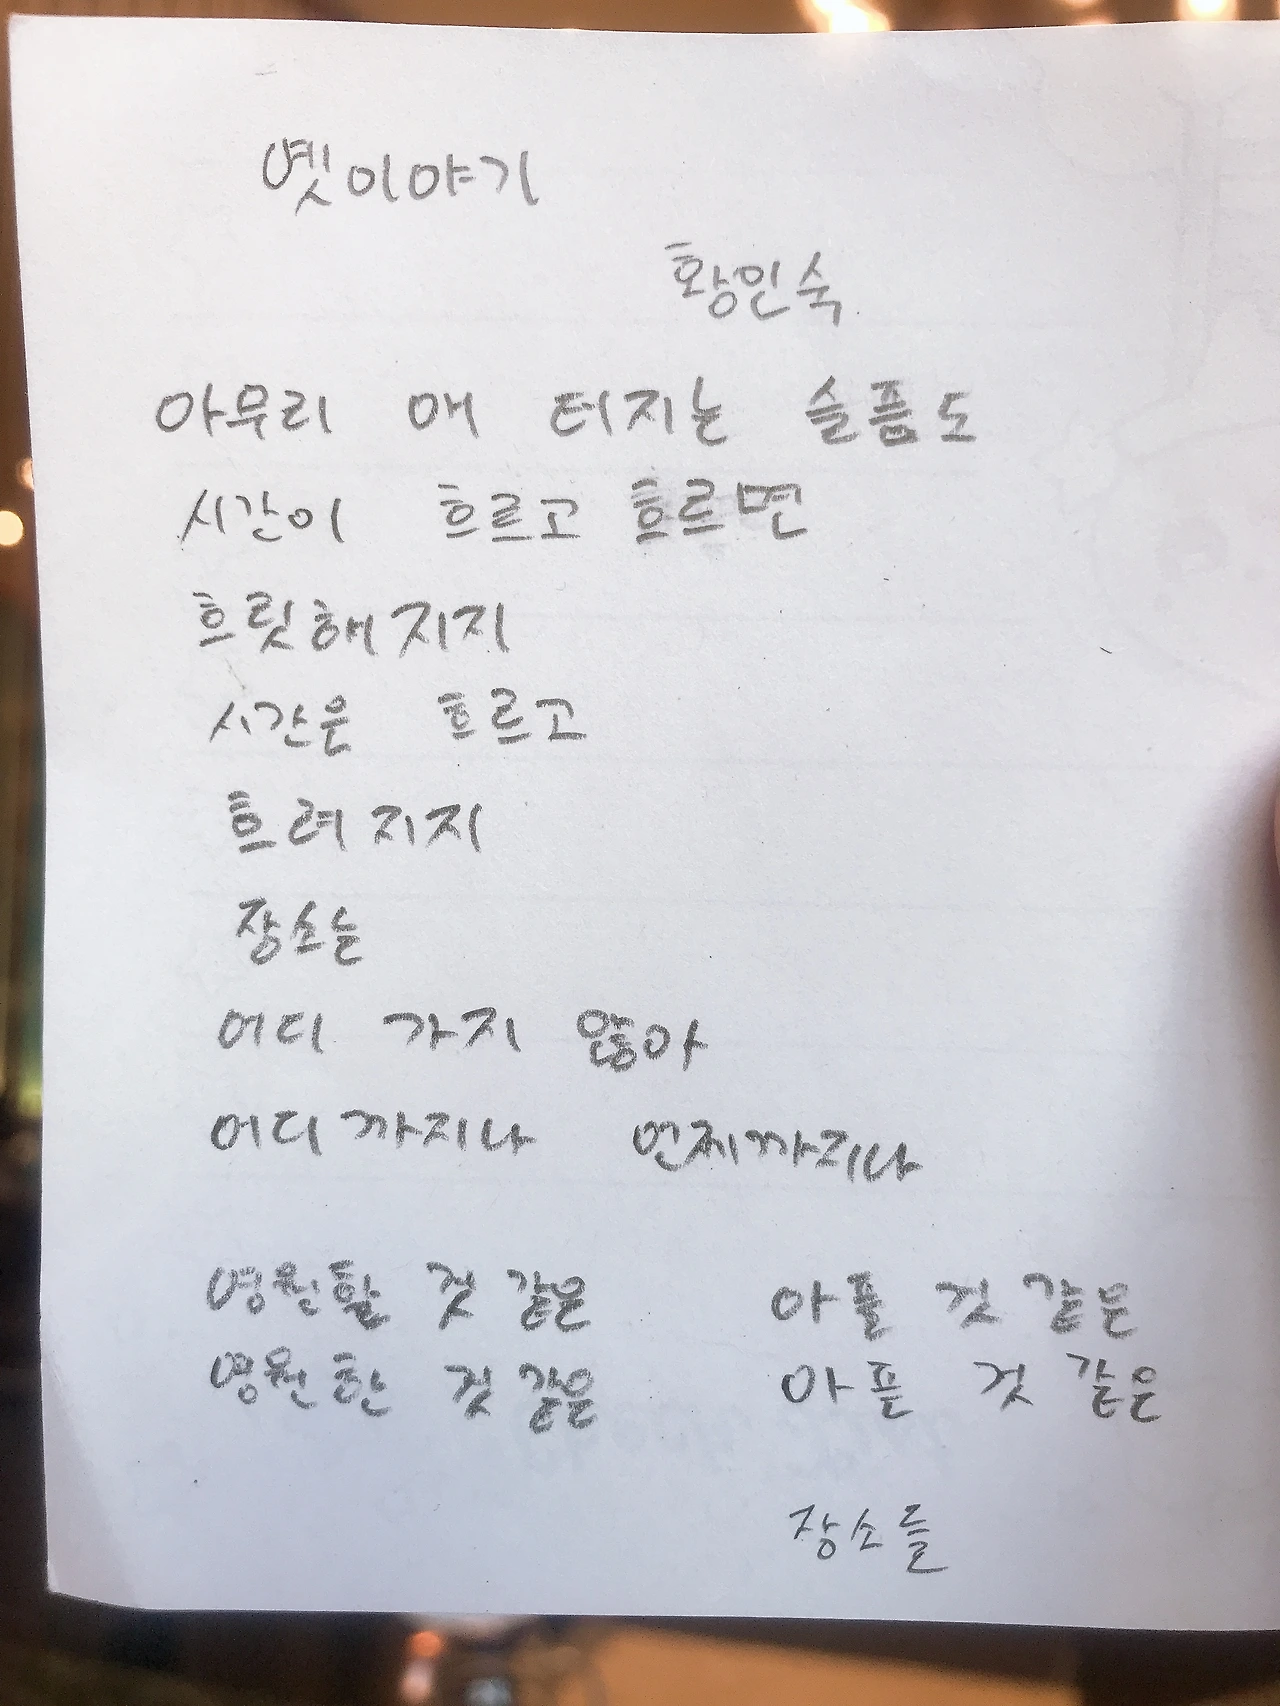 옛이야기
황인숙
아무리 애 터지는 슬픔도
시간이 흐르고 흐르면
흐릿해지지
시간은 흐르고
흐려지지
장소는
어디 가지 않아
어디까지나 언제까지나
영원할 것 같은 아플 것 같은
영원한 것 같은 아픈 것 같은
장소들